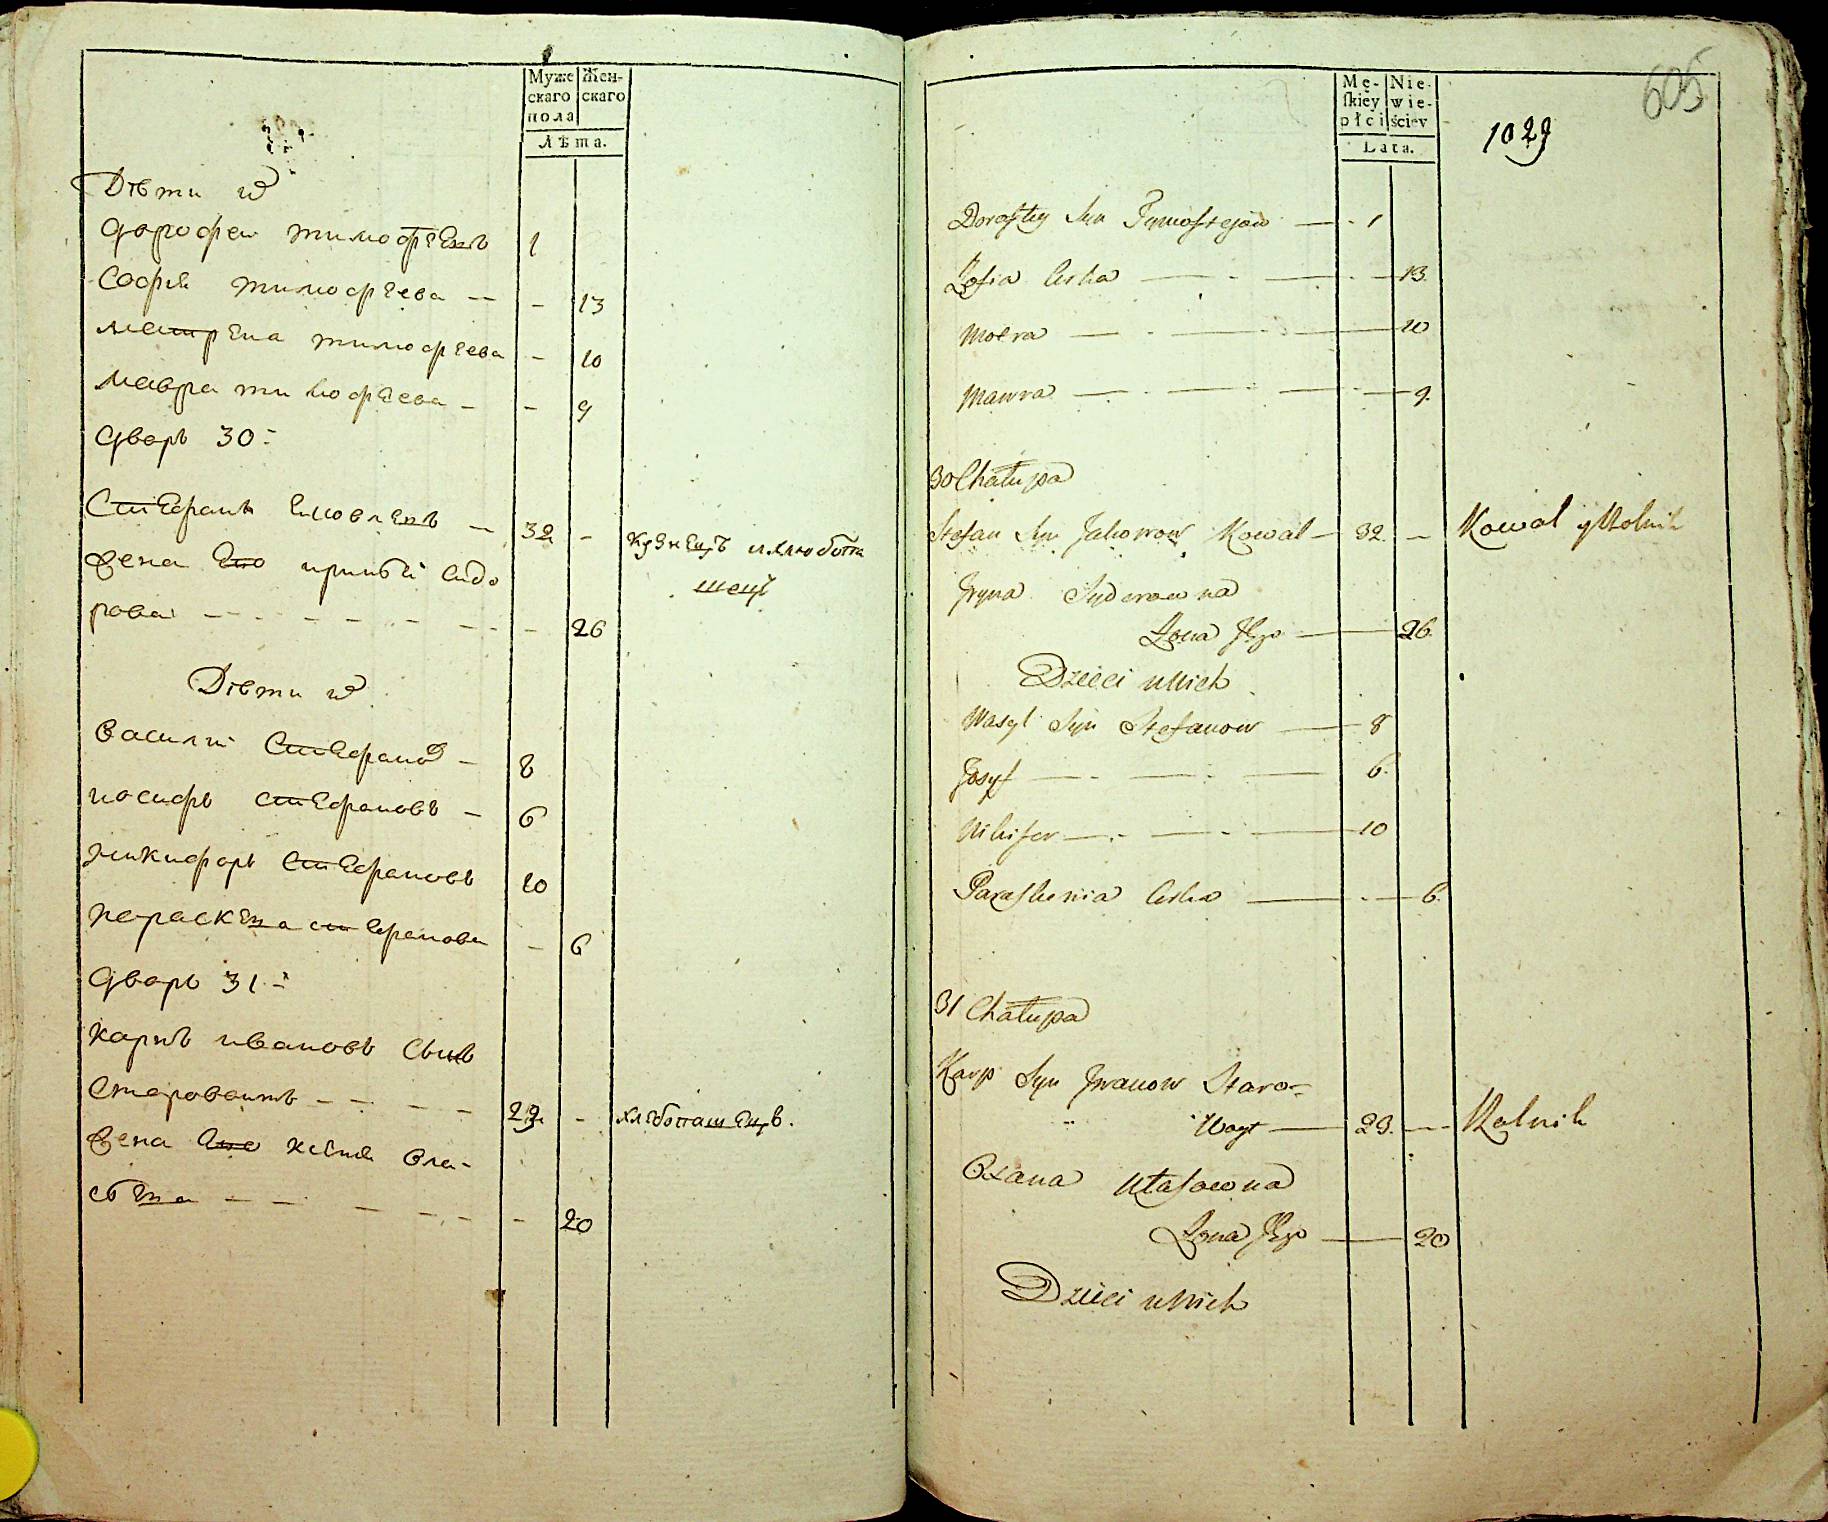 Муже
скаго
пола
Жен-
скаго
Лѣта.
Дѣти
дорофеи тимофѣевъ 1
Софія тимофѣева — - 13
матрена тимофѣева - 10
мавра тимофѣева - - 9
дворъ 30:
Стефанъ яковлевъ — 32 - кузнецъ и хлѣбопа
жена его ирина сидо шецъ
рова — - — - — - 26
Дѣти
василіи Стефанов — 8
иосифъ стефановъ — 6
никифоръ Стефановъ 10
параскева стефанова - 6
дворъ 31:
карпъ ивановъ сынъ
Старовоитъ - — - — 29 - хлѣбопашецъ.
жена его ксения вла-
сова — — — - - - 20
Mę-
ſkiey
płci
Nie-
wie-
ściey
Lata.
605
1029
Dorofey Syn Tymofiejow — - 1
Zofia Corka — - — - 13.
Motra — - — - — 10
Mawra — - — - — 9.
30 Chałupa
Stefan Syn Jakowow Kowal — 32. — Kowal y Rolnik
Iryna Sydorowna
Żona Jego — 26.
Dzieci u Nich
Wasyl Syn Stefanow — 8
Josyf — - — 6.
Nikifor — - — - — 10
Paraskewia Corka — - — 6.
31 Chałupa
Karp Syn Iwanow Staro-
Woyt — 29. — Rolnik
Oxana Własowna
Żona Jego — 20
Dzieci u Nich